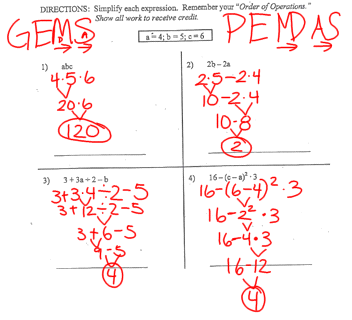 DIRECTIONS: Simplify each expression. Remember your "Order of Operations."
Show all work to receive credit.
GEMS
MD AS
PEMDAS
a = 4; b = 5; c = 6
1) abc
4·5·6
20·6
120
2) 2b – 2a
2·5-2·4
10-2·4
10-8
2
3) 3 + 3a ÷ 2 – b
3+3·4÷2-5
3+12÷2-5
3+6-5
9-5
4
4) 16 – (c – a)² · 3
16-(6-4)²·3
16-2²·3
16-4·3
16-12
4